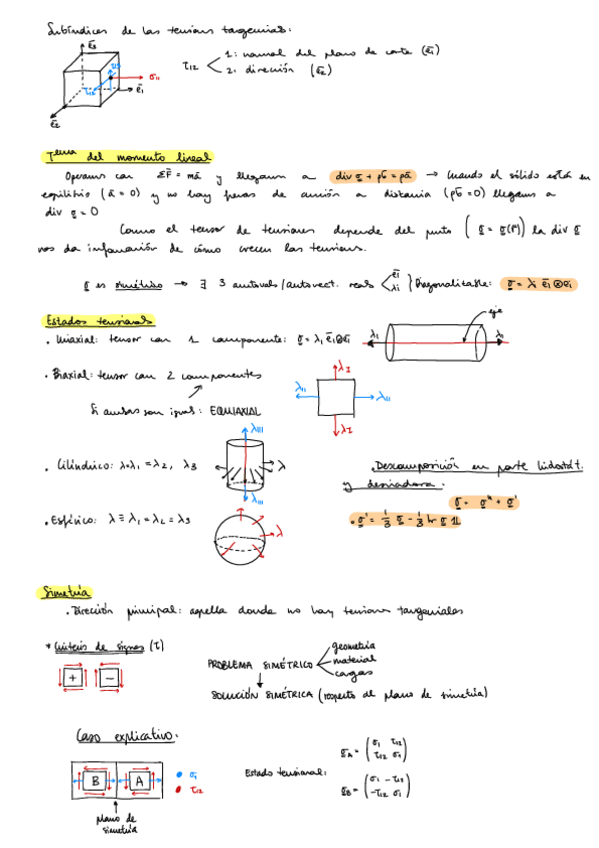 Subíndices de las tensiones tangenciales:
ē3
τ12
1: normal del plano de corte (ē1)
2: dirección (ē2)
σ11
ē1
ē2
Tema del momento lineal
Operamos con ΣF̄ = mā y llegamos a div σ + ρb̄ = ρā → Cuando el sólido está en
equilibrio (ā = 0) y no hay fuerzas de acción a distancia (ρb̄ = 0) llegamos a
div σ = 0
Como el tensor de tensiones depende del punto (σ = σ(r̄)) la div σ
nos da información de cómo crecen las tensiones.
σ es simétrico → ∃ 3 autovals/autovect. reales ēi λi } Diagonalizable: σ = λi ēi⊗ēi
Estados tensionales
eje
• Uniaxial: tensor con 1 componente: σ = λ1 ē1⊗ē1
λ1 λ1
• Biaxial: tensor con 2 componentes
λI
λII λII
λI
Si ambas son igual: EQUIAXIAL
λIII
• Cilíndrico: λ=λ1 = λ2, λ3
λ
λIII
• Descomposición en parte hidrostát.
y desviadora.
σ = σᴴ + σ'
• Esférico: λ ≡ λ1 = λ2 = λ3
λ
• σ' = 1/3 σ - 1/3 tr σ 1
Simetría
• Dirección principal: aquella donde no hay tensiones tangenciales
* Criterio de signos (τ)
+ −
PROBLEMA SIMÉTRICO
geometría
material
cargas
SOLUCIÓN SIMÉTRICA (respecto al plano de simetría)
Caso explicativo:
B A
• σ1
• τ12
plano de
simetría
Estado tensional:
σA = (σ1 τ12
τ12 σ1)
σB = (σ1 -τ12
-τ12 σ1)